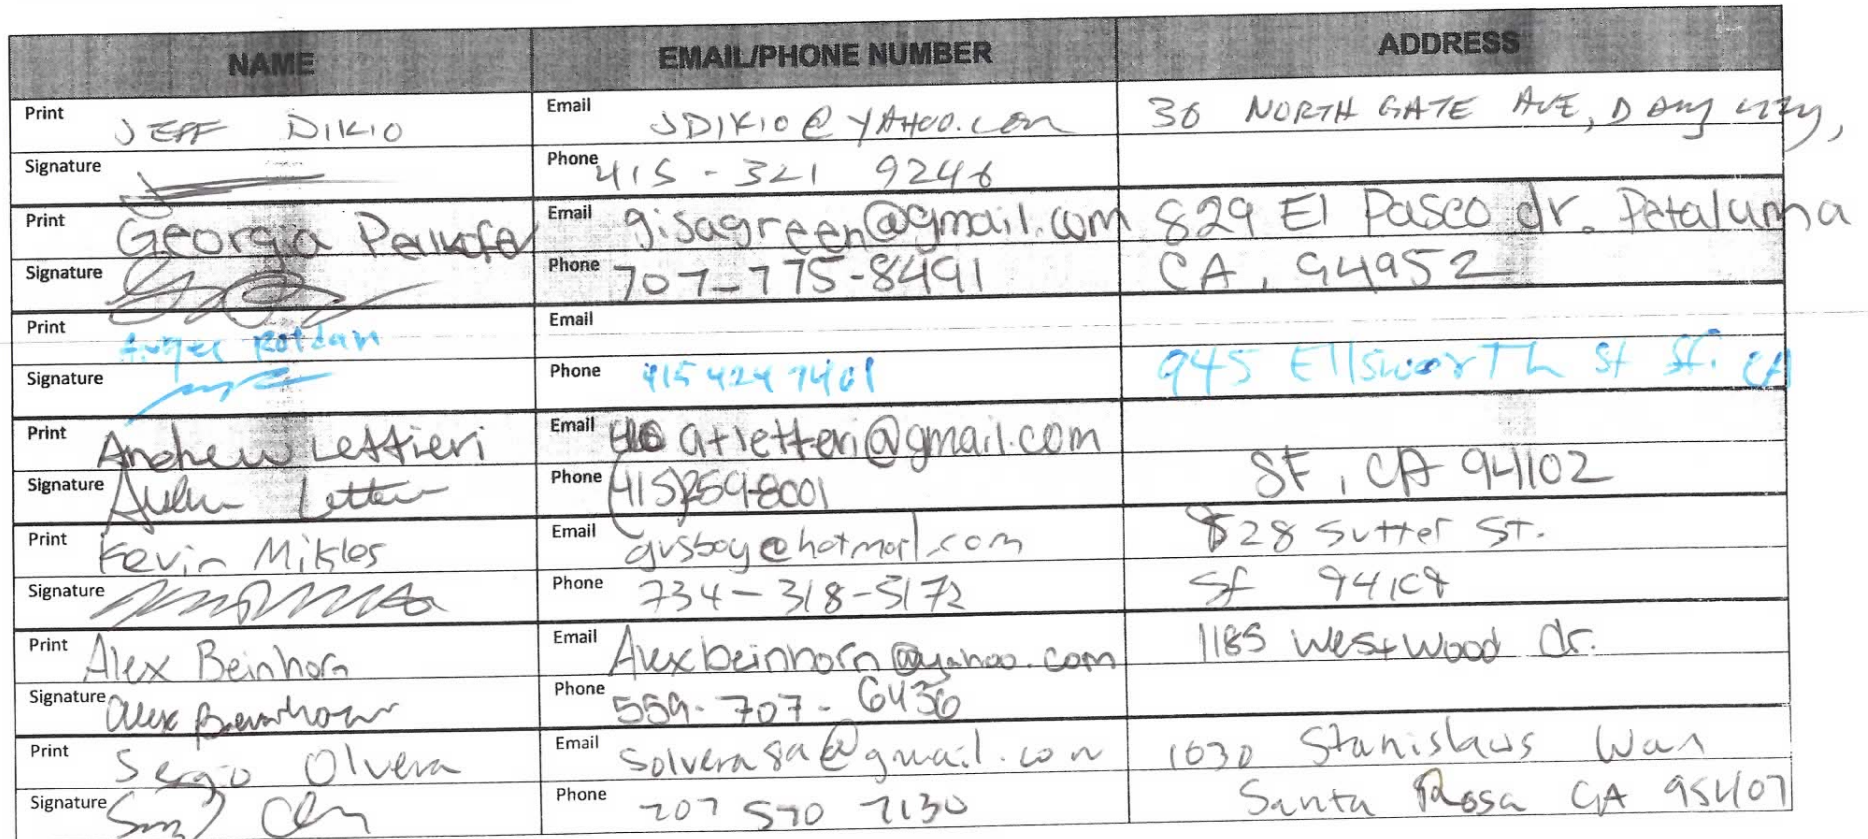 NAME EMAIL/PHONE NUMBER ADDRESS
Print JEFF DIKIO Email JDIKIO@YAHOO.com 36 NORTH GATE AVE, Daly city,
Signature Phone 415-321 9246
Print Georgia Email gisagreen@gmail.com 829 El Paseo dr. Petaluma
Signature Phone 707-775-8491 CA, 94952
Print Roldan Email
Signature Phone 415 424 7401 945 Ellsworth St sf. CA
Print Andrew Lettieri Email atletteri@gmail.com
Signature Phone (415)259-8001 SF, CA 94102
Print Kevin Mikles Email gusboy@hotmail.com 828 Sutter St.
Signature Phone 734-318-5172 SF 94109
Print Alex Beinhorn Email Alexbeinhorn@yahoo.com 1185 Westwood Dr.
Signature Alex Beinhorn Phone 559-707-6436
Print Sergio Olvera Email Solvera8a@gmail.com 1030 Stanislaus Way
Signature Phone 707 570 7130 Santa Rosa CA 95407